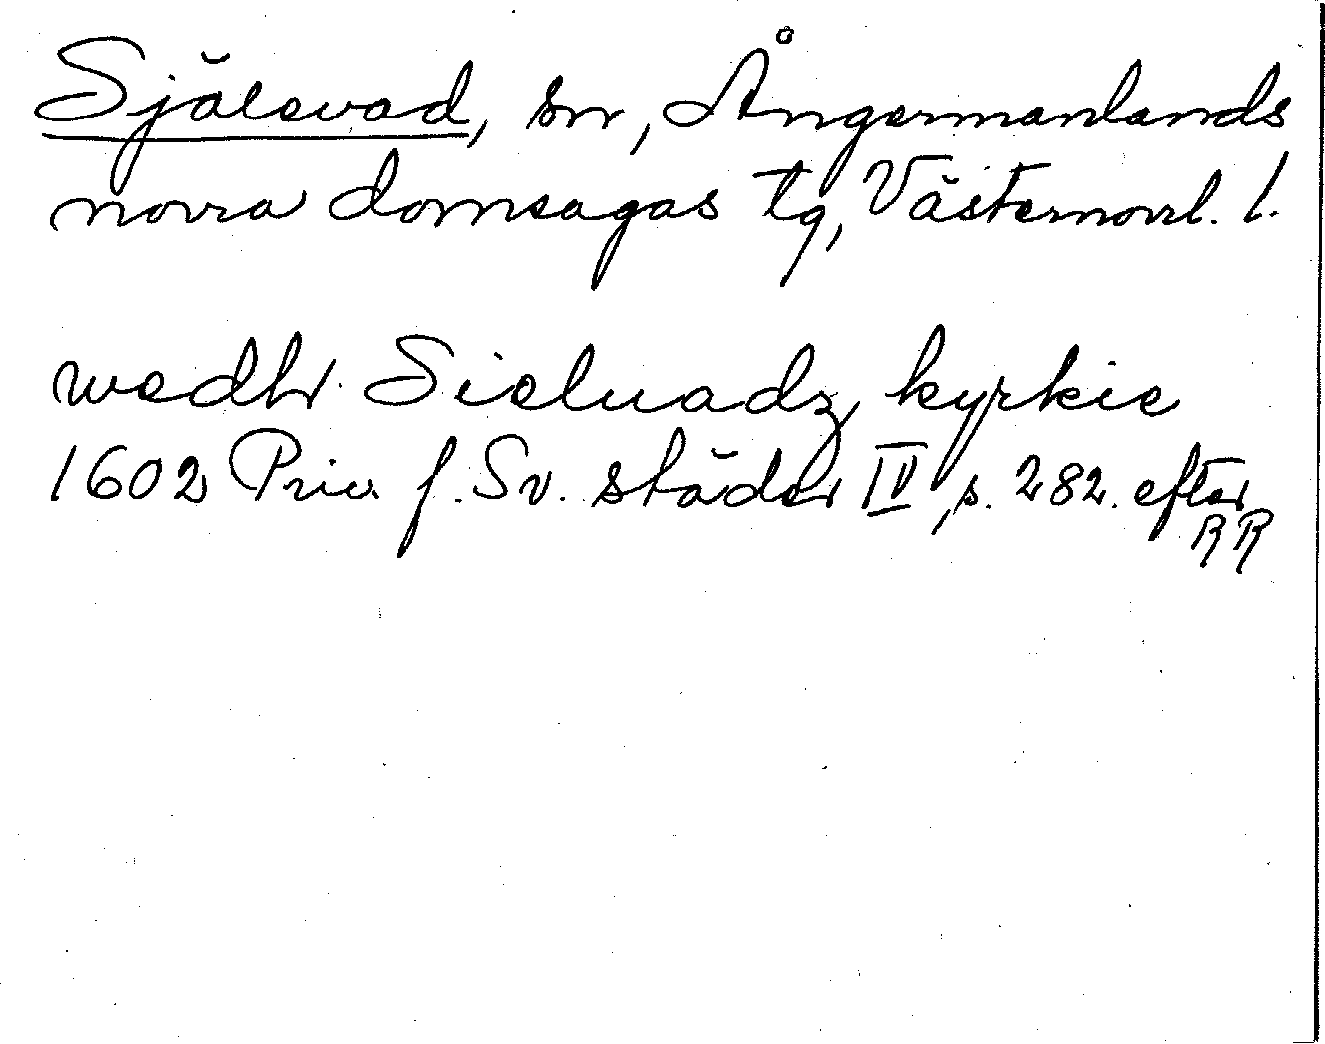 Själevad, sn, Ångermanlands
norra domsagas tg, Västernorrl. l.
wedhr Sieluadz kyrkie
1602 Priv. f. Sv. städer IV, s. 282. efter
RR